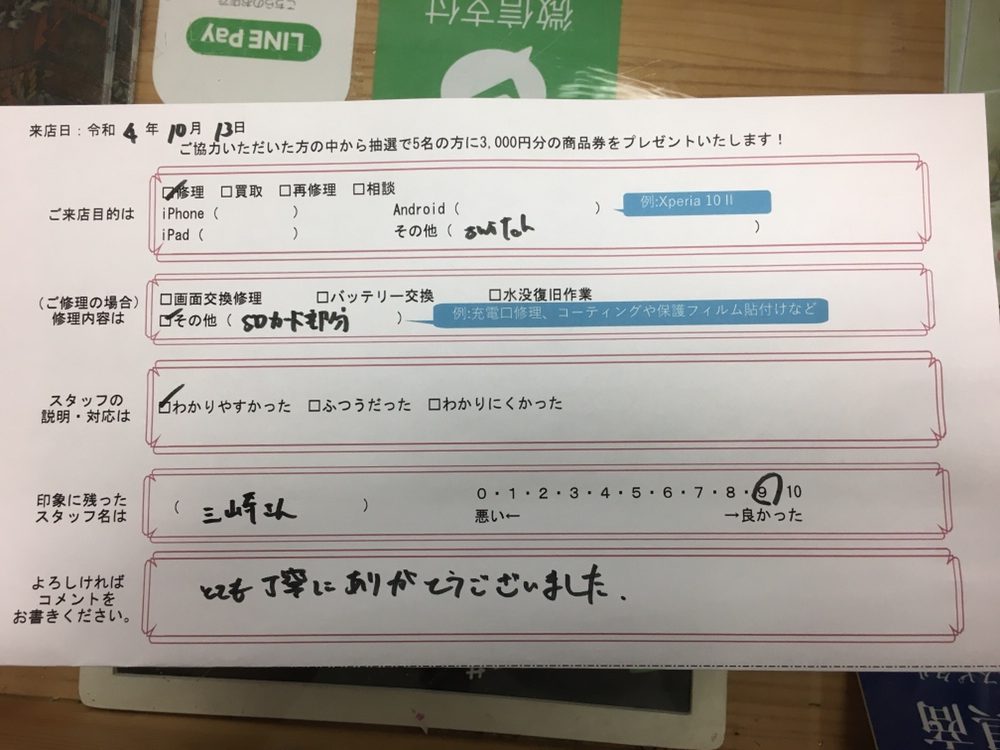 こちらのお店で
LINE Pay
微信支付
来店日：令和 4 年 10 月 13 日
ご協力いただいた方の中から抽選で5名の方に3,000円分の商品券をプレゼントいたします！
ご来店目的は
☑修理 □買取 □再修理 □相談
iPhone（ ） Android（ ） 例:Xperia 10 II
iPad（ ） その他（ switch ）
（ご修理の場合）
修理内容は
□画面交換修理 □バッテリー交換 □水没復旧作業
☑その他（ SDカード部分 ） 例:充電口修理、コーティングや保護フィルム貼付けなど
スタッフの
説明・対応は
☑わかりやすかった □ふつうだった □わかりにくかった
印象に残った
スタッフ名は
（ 三崎さん ）
0・1・2・3・4・5・6・7・8・9・10
悪い← →良かった
よろしければ
コメントを
お書きください。
とても丁寧にありがとうございました.